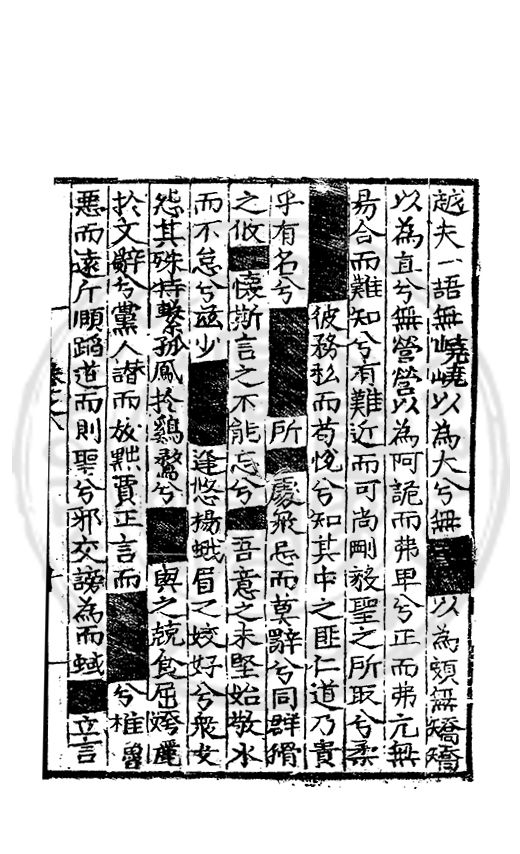 越夫一語無嶢嶢以為大兮無■以為頻無矯矯
以為直兮無營營以為阿詭而弗卑兮正而弗亢無
易合而難知兮有難近而可尚剛毅聖之所取兮柔
■彼務私而苟悅兮知其中之匪仁道乃貴
乎有名兮■所■慶飛忌而莫辭兮同群
之攸■懷斯言之不能忘兮■吾意之未堅始敬水
而不怠兮玆少■逢悠揚蛾眉之姣好兮衆女
怨其殊特繫孤鳳於鷄鶩兮■與之競食屈
於文辭兮黨人譖而放黜賈正言而■兮椎魯
悪而遠斤順蹈道而則聖兮邪交謗為而蜮■立言
卷之八